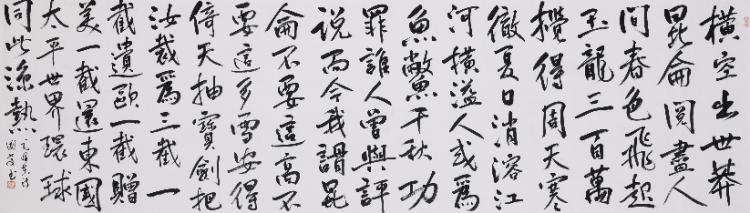 橫空出世莽
昆侖閱盡人
間春色飛起
玉龍三百萬
攪得周天寒
徹夏日消溶江
河橫溢人或爲
魚鱉千秋功
罪誰人曾與評
説而今我謂昆
侖不要這高不
要這多雪安得
倚天抽寶劍把
汝裁爲三截一
截遺歐一截贈
美一截還東國
太平世界環球
同此涼熱